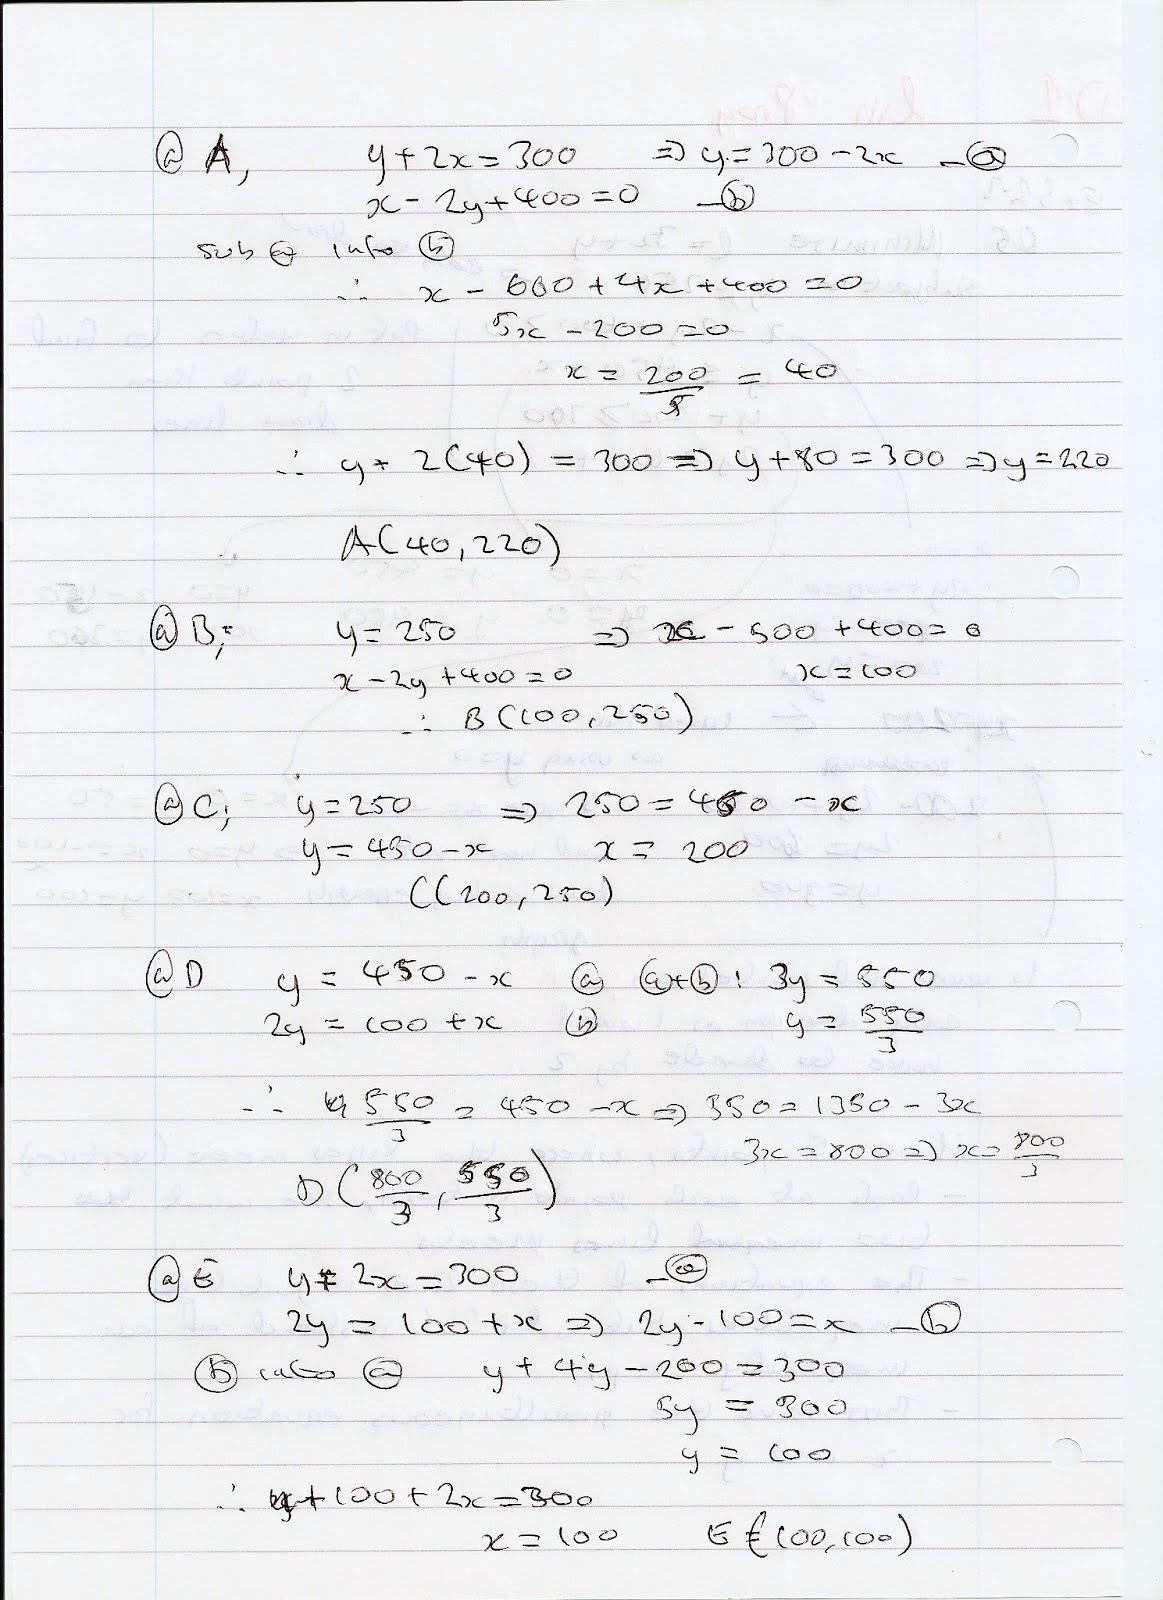 @ A, y + 2x = 300 => y = 300 - 2x - ⓐ
x - 2y + 400 = 0 - ⓑ
sub ⓐ into ⓑ
∴ x - 600 + 4x + 400 = 0
5x - 200 = 0
x = 200/5 = 40
∴ y + 2(40) = 300 => y + 80 = 300 => y = 220
∴ A(40, 220)
@ B; y = 250 => x - 500 + 400 = 0
x - 2y + 400 = 0 x = 100
∴ B(100, 250)
@ C; y = 250 => 250 = 450 - x
y = 450 - x x = 200
C(200, 250)
@ D y = 450 - x ⓐ ⓐ+ⓑ: 3y = 550
2y = 100 + x ⓑ y = 550/3
∴ 550/3 = 450 - x => 550 = 1350 - 3x
3x = 800 => x = 800/3
D(800/3, 550/3)
@ E y + 2x = 300 - ⓐ
2y = 100 + x => 2y - 100 = x - ⓑ
ⓑ into ⓐ y + 4y - 200 = 300
5y = 500
y = 100
∴ 100 + 2x = 300
x = 100 E (100, 100)